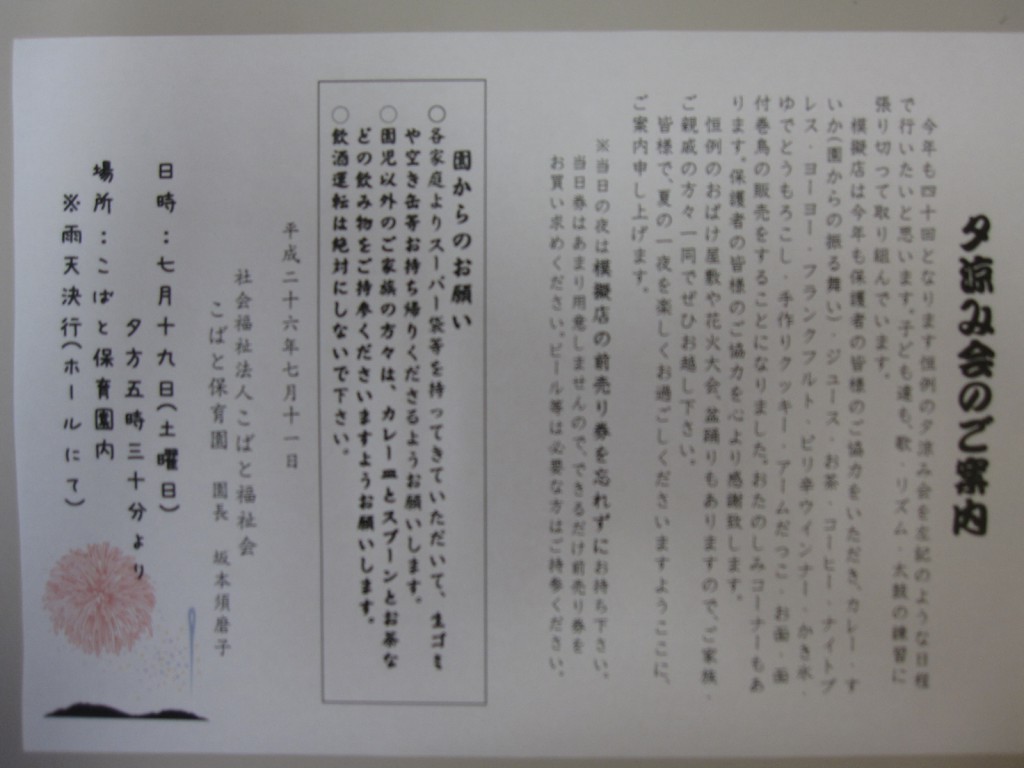 夕涼み会のご案内
今年も四十回となります恒例の夕涼み会を左記のような日程
で行いたいと思います。子ども達も、歌・リズム・太鼓の練習に
張り切って取り組んでいます。
模擬店は今年も保護者の皆様のご協力をいただき、カレー・す
いか(園からの振る舞い)・ジュース・お茶・コーヒー・ナイトブ
レス・ヨーヨー・フランクフルト・ピリ辛ウインナー・かき氷・
ゆでとうもろこし・手作りクッキー・アームだっこ・お面・面
付巻鳥の販売をすることになりました。おたのしみコーナーもあ
ります。保護者の皆様のご協力を心より感謝致します。
恒例のおばけ屋敷や花火大会、盆踊りもありますので、ご家族・
ご親戚の方々一同でぜひお越し下さい。
皆様で、夏の一夜を楽しくお過ごしくださいますようここに、
ご案内申し上げます。
※当日の夜は模擬店の前売り券を忘れずにお持ち下さい。
当日券はあまり用意しませんので、できるだけ前売り券を
お買い求めください。ビール等は必要な方はご持参ください。
園からのお願い
○各家庭よりスーパー袋等を持ってきていただいて、生ゴミ
や空き缶等お持ち帰りくださるようお願いします。
○園児以外のご家族の方々は、カレー皿とスプーンとお茶な
どの飲み物をご持参くださいますようお願いします。
○飲酒運転は絶対にしないで下さい。
平成二十六年七月十一日
社会福祉法人こばと福祉会
こばと保育園 園長 坂本須磨子
日時:七月十九日(土曜日)
夕方五時三十分より
場所:こばと保育園内
※雨天決行(ホールにて)